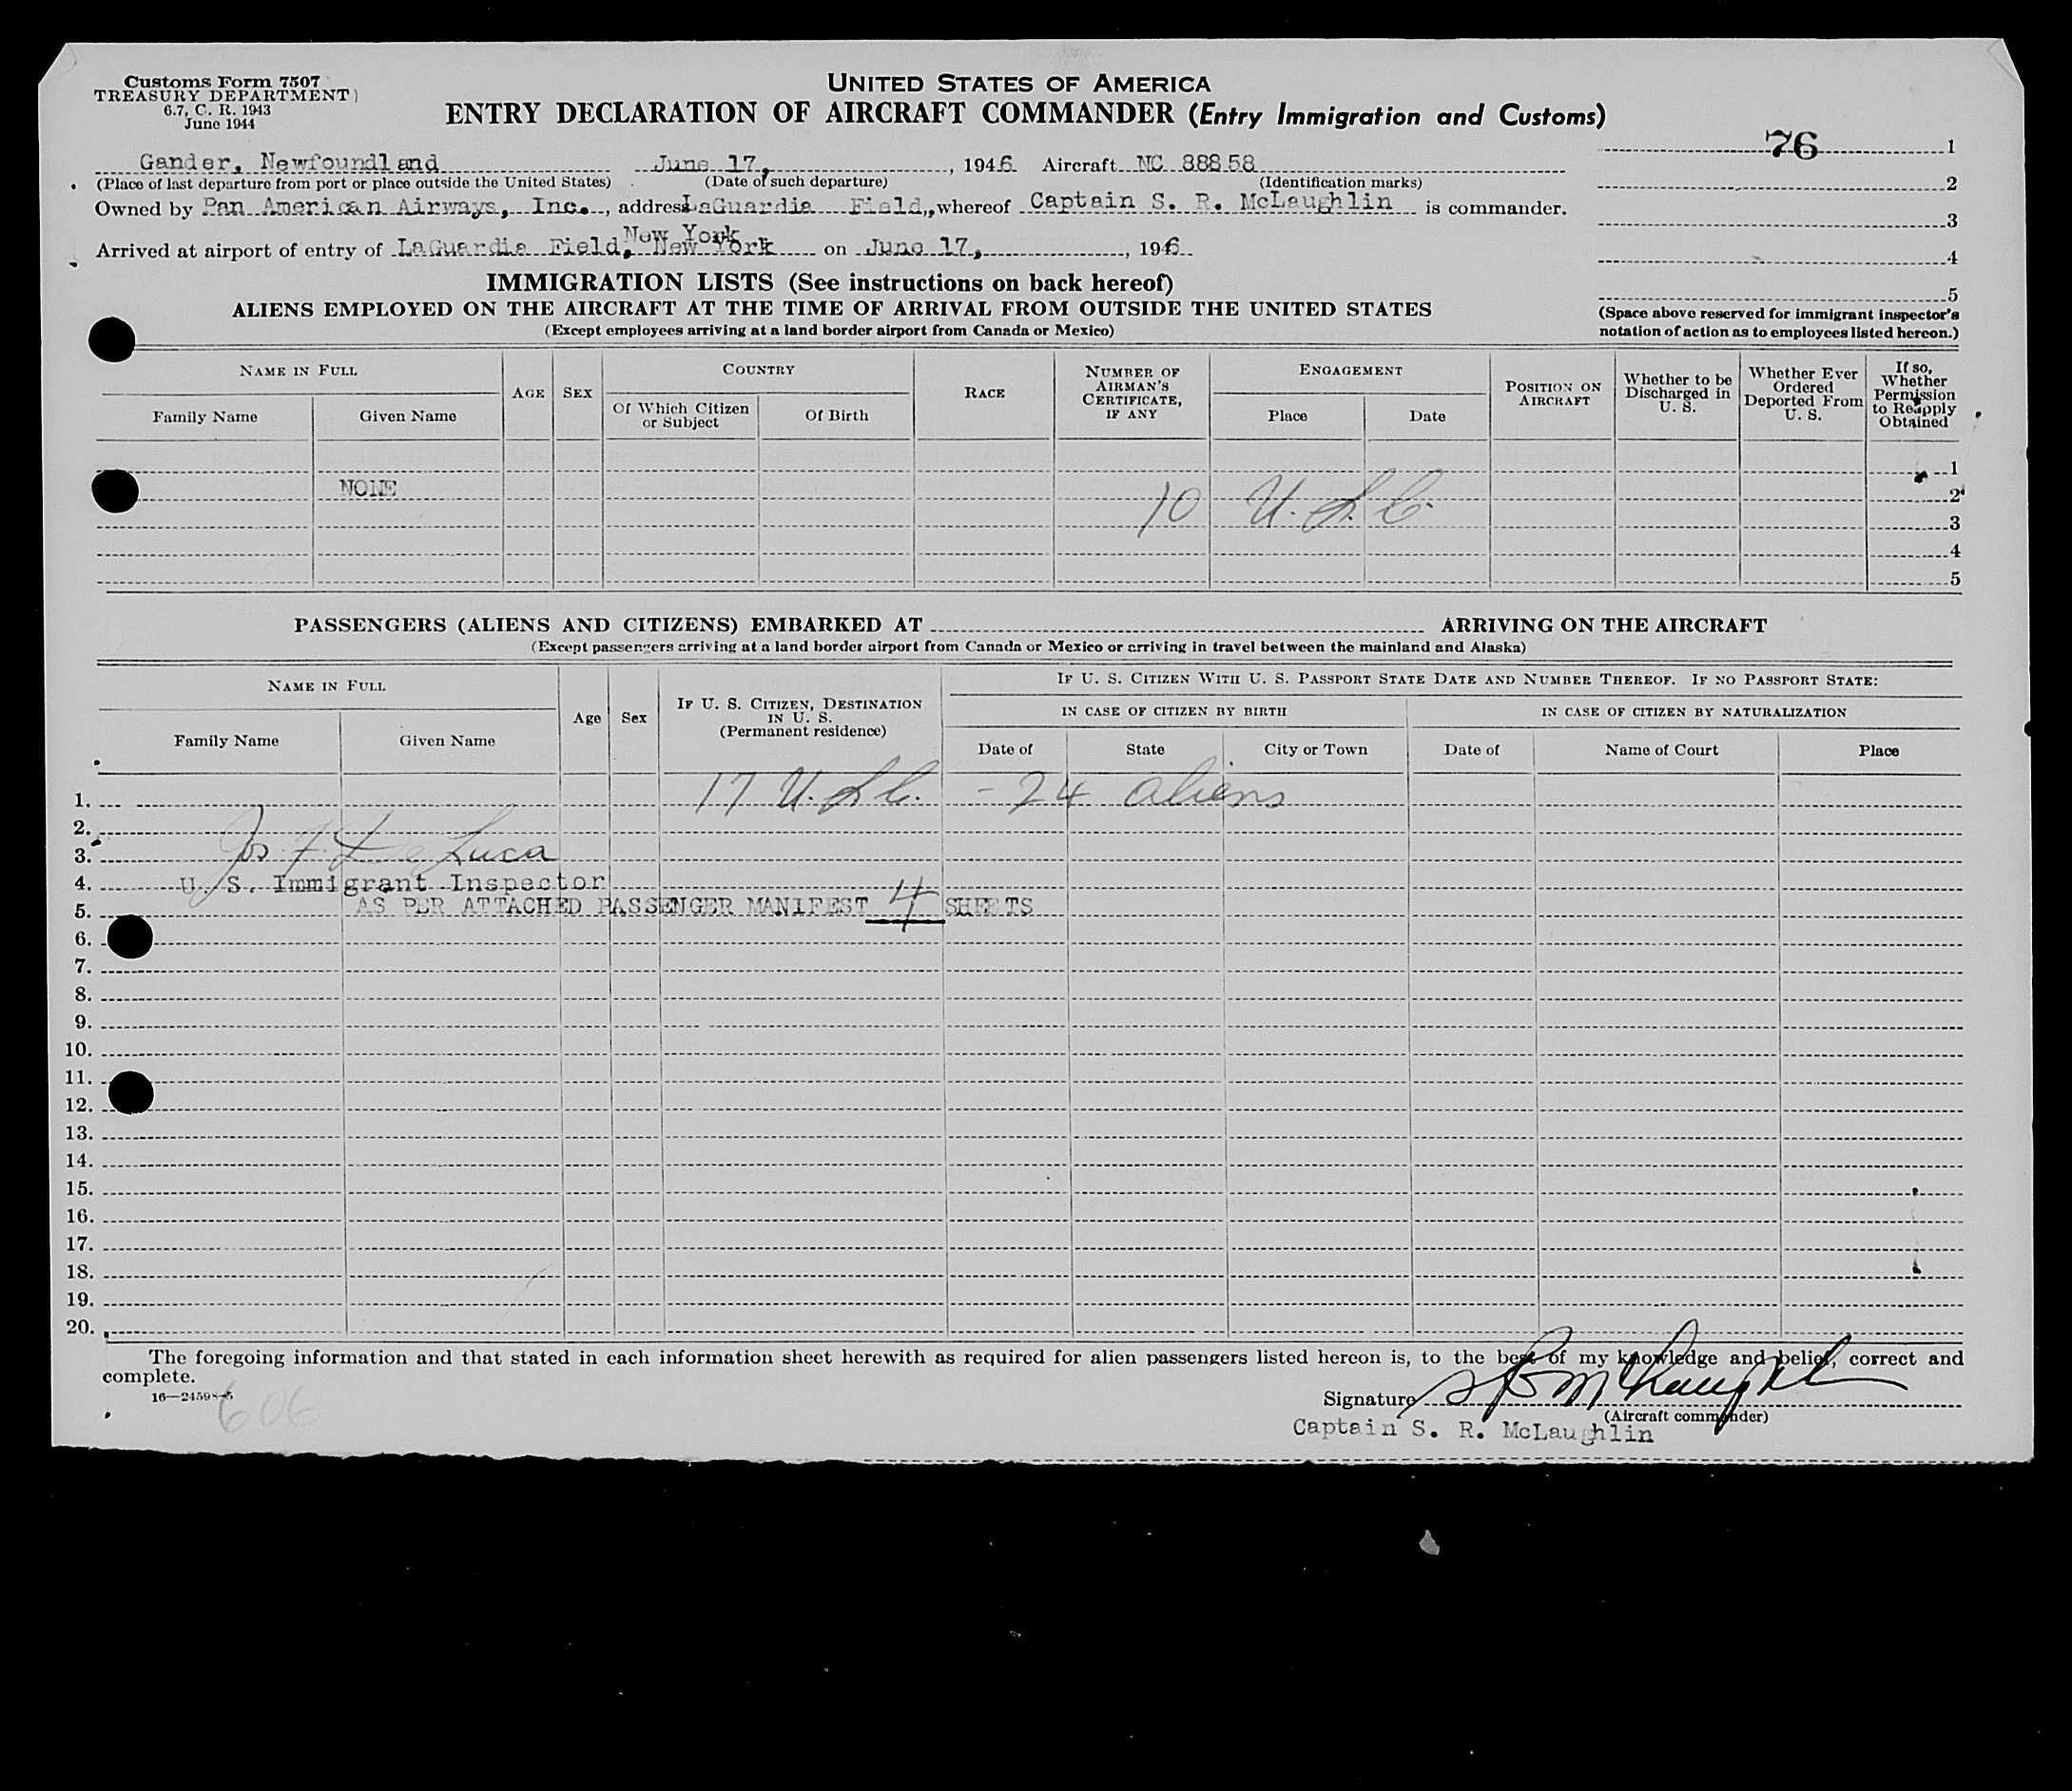 Customs Form 7507
TREASURY DEPARTMENT
6.7, C. R. 1943
June 1944
UNITED STATES OF AMERICA
ENTRY DECLARATION OF AIRCRAFT COMMANDER (Entry Immigration and Customs)
76 1
2
3
4
5
(Space above reserved for immigrant inspector's
notation of action as to employees listed hereon.)
Gander, Newfoundland June 17, , 1946 Aircraft NC 88858
(Place of last departure from port or place outside the United States) (Date of such departure) (Identification marks)
Owned by Pan American Airways, Inc. , address LaGuardia Field, , whereof Captain S. R. McLaughlin is commander.
New York
Arrived at airport of entry of LaGuardia Field, New York on June 17, , 1946
IMMIGRATION LISTS (See instructions on back hereof)
ALIENS EMPLOYED ON THE AIRCRAFT AT THE TIME OF ARRIVAL FROM OUTSIDE THE UNITED STATES
(Except employees arriving at a land border airport from Canada or Mexico)
NAME IN FULL
Family Name Given Name
AGE SEX
COUNTRY
Of Which Citizen or Subject Of Birth
RACE
NUMBER OF AIRMAN'S CERTIFICATE, IF ANY
ENGAGEMENT
Place Date
POSITION ON AIRCRAFT
Whether to be Discharged in U. S.
Whether Ever Ordered Deported From U. S.
If so, Whether Permission to Reapply Obtained
1
NONE 10 U.S.C. 2
3
4
5
PASSENGERS (ALIENS AND CITIZENS) EMBARKED AT ARRIVING ON THE AIRCRAFT
(Except passengers arriving at a land border airport from Canada or Mexico or arriving in travel between the mainland and Alaska)
NAME IN FULL
Family Name Given Name
Age Sex
IF U. S. CITIZEN, DESTINATION IN U. S. (Permanent residence)
IF U. S. CITIZEN WITH U. S. PASSPORT STATE DATE AND NUMBER THEREOF. IF NO PASSPORT STATE:
IN CASE OF CITIZEN BY BIRTH IN CASE OF CITIZEN BY NATURALIZATION
Date of State City or Town Date of Name of Court Place
1. 17 U.S.C. - 24 aliens
2.
3. Jos. F. De Luca
4. U. S. Immigrant Inspector
5. AS PER ATTACHED PASSENGER MANIFEST 4 SHEETS
6.
7.
8.
9.
10.
11.
12.
13.
14.
15.
16.
17.
18.
19.
20.
The foregoing information and that stated in each information sheet herewith as required for alien passengers listed hereon is, to the best of my knowledge and belief, correct and
complete.
16—24598-5
606
Signature S R McLaughlin
(Aircraft commander)
Captain S. R. McLaughlin